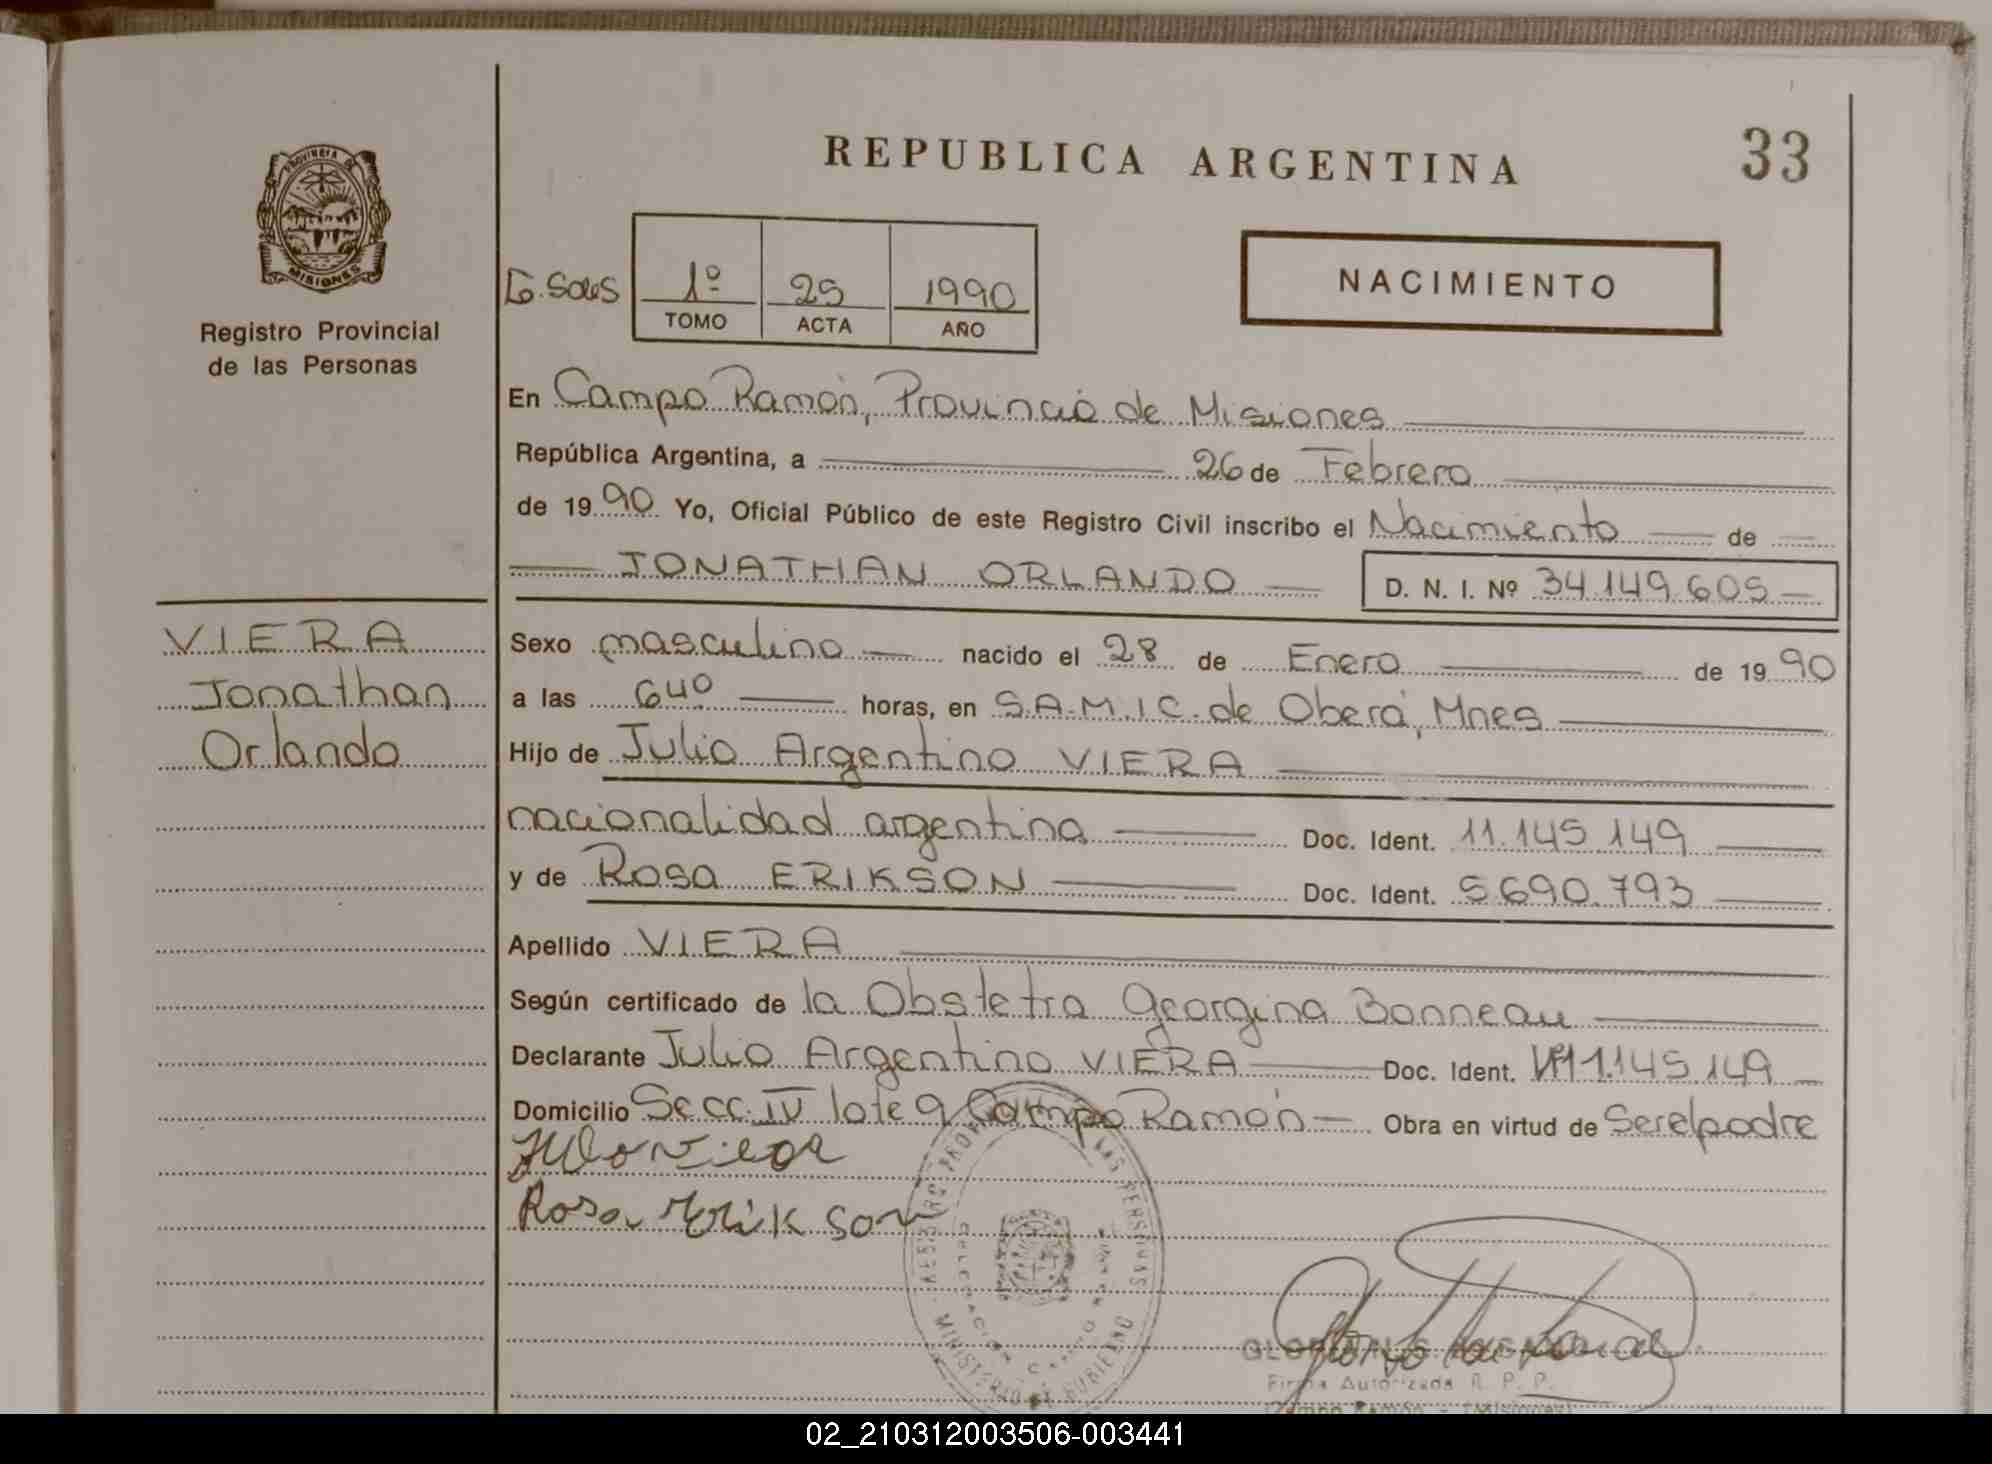 REPUBLICA ARGENTINA
33
PROVINCIA DE
MISIONES
Registro Provincial
de las Personas
1º 25 1990
TOMO ACTA AÑO
NACIMIENTO
En Campo Ramón, Provincia de Misiones
República Argentina, a 26 de Febrero
de 1990 Yo, Oficial Público de este Registro Civil inscribo el Nacimiento de
JONATHAN ORLANDO D. N. I. Nº 34.149.605
VIERA
Jonathan
Orlando
Sexo masculino nacido el 28 de Enero de 1990
a las 640 horas, en S.A.M.I.C. de Oberá, Mnes
Hijo de Julio Argentino VIERA
nacionalidad argentina Doc. Ident. 11.145.149
y de Rosa ERIKSON Doc. Ident. 5.690.793
Apellido VIERA
Según certificado de la Obstetra Georgina Bonneau
Declarante Julio Argentino VIERA Doc. Ident. Nº11.145.149
Domicilio Secc. IV lote 9 Campo Ramón Obra en virtud de Ser el padre
Rosa Erikson
MINISTERIO DE GOBIERNO
LAS PERSONAS
Firma Autorizada R. P. P.
Campo Ramón - (Misiones)
02_210312003506-003441